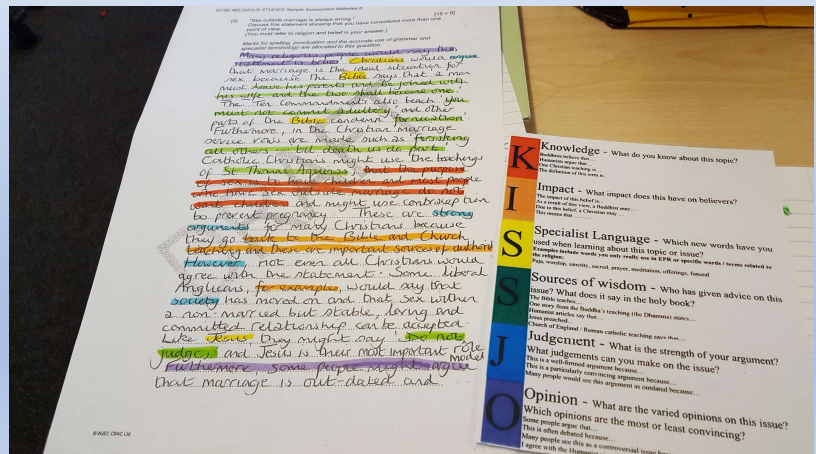 GCSE RELIGIOUS STUDIES Sample Assessment Materials 8
"Sex outside marriage is always wrong."
Discuss this statement showing that you have considered more than one
point of view.
(You must refer to religion and belief in your answer.)
[15 + 6]
Marks for spelling, punctuation and the accurate use of grammar and
specialist terminology are allocated to this question.
Many religious people would say this
statement is Christians would argue
that marriage is the ideal situation for
sex because the Bible says that a man
must leave his parents and be joined with
his wife and the two shall become one.
The Ten Commandments also teach 'you
must not commit adultery' and other
parts of the Bible condemn fornication.
Futhermore, in the Christian marriage
service vows are made such as 'forsaking
all others... til death us do part.'
Catholic Christians might use the teachings
of St Thomas that the purpose
of sex is to have children and most people
who have sex outside marriage do not
want children and might use contraception
to prevent pregnancy. These are strong
arguments for many Christians because
they go back to the Bible and Church
teaching and these are important sources of authority
However, not even all Christians would
agree with the statement. Some liberal
Anglicans, for example, would say that
society has moved on and that sex within
a non-married but stable, loving and
committed relationship can be accepted.
Like Jesus, they might say 'Do not
judge', and Jesus is their most important role
model
Furthermore some people might argue
that marriage is out-dated and
© WJEC CBAC Ltd.
K
Knowledge - What do you know about this topic?
Buddhists believe that...
Humanists argue that...
One Christian teaching is...
The definition of this term is...
I
Impact - What impact does this have on believers?
The impact of this belief is...
As a result of this view, a Buddhist may...
Due to this belief, a Christian may...
This means that...
S
Specialist Language - Which new words have you
used when learning about this topic or issue?
Examples include words you only really use in EPR or specific words / terms related to
the religion:
Puja, worship, sanctity, sacred, prayer, meditation, offerings, funeral
S
Sources of wisdom - Who has given advice on this
issue? What does it say in the holy book?
The Bible teaches...
One story from the Buddha's teaching (the Dhamma) states...
Humanist articles say that...
Jesus preached...
Church of England / Roman catholic teaching says that...
J
Judgement - What is the strength of your argument?
What judgements can you make on the issue?
This is a well-formed argument because...
This is a particularly convincing argument because...
Many people would see this argument as outdated because...
O
Opinion - What are the varied opinions on this issue?
Which opinions are the most or least convincing?
Some people argue that...
This is often debated because...
Many people see this as a controversial issue
I agree with the